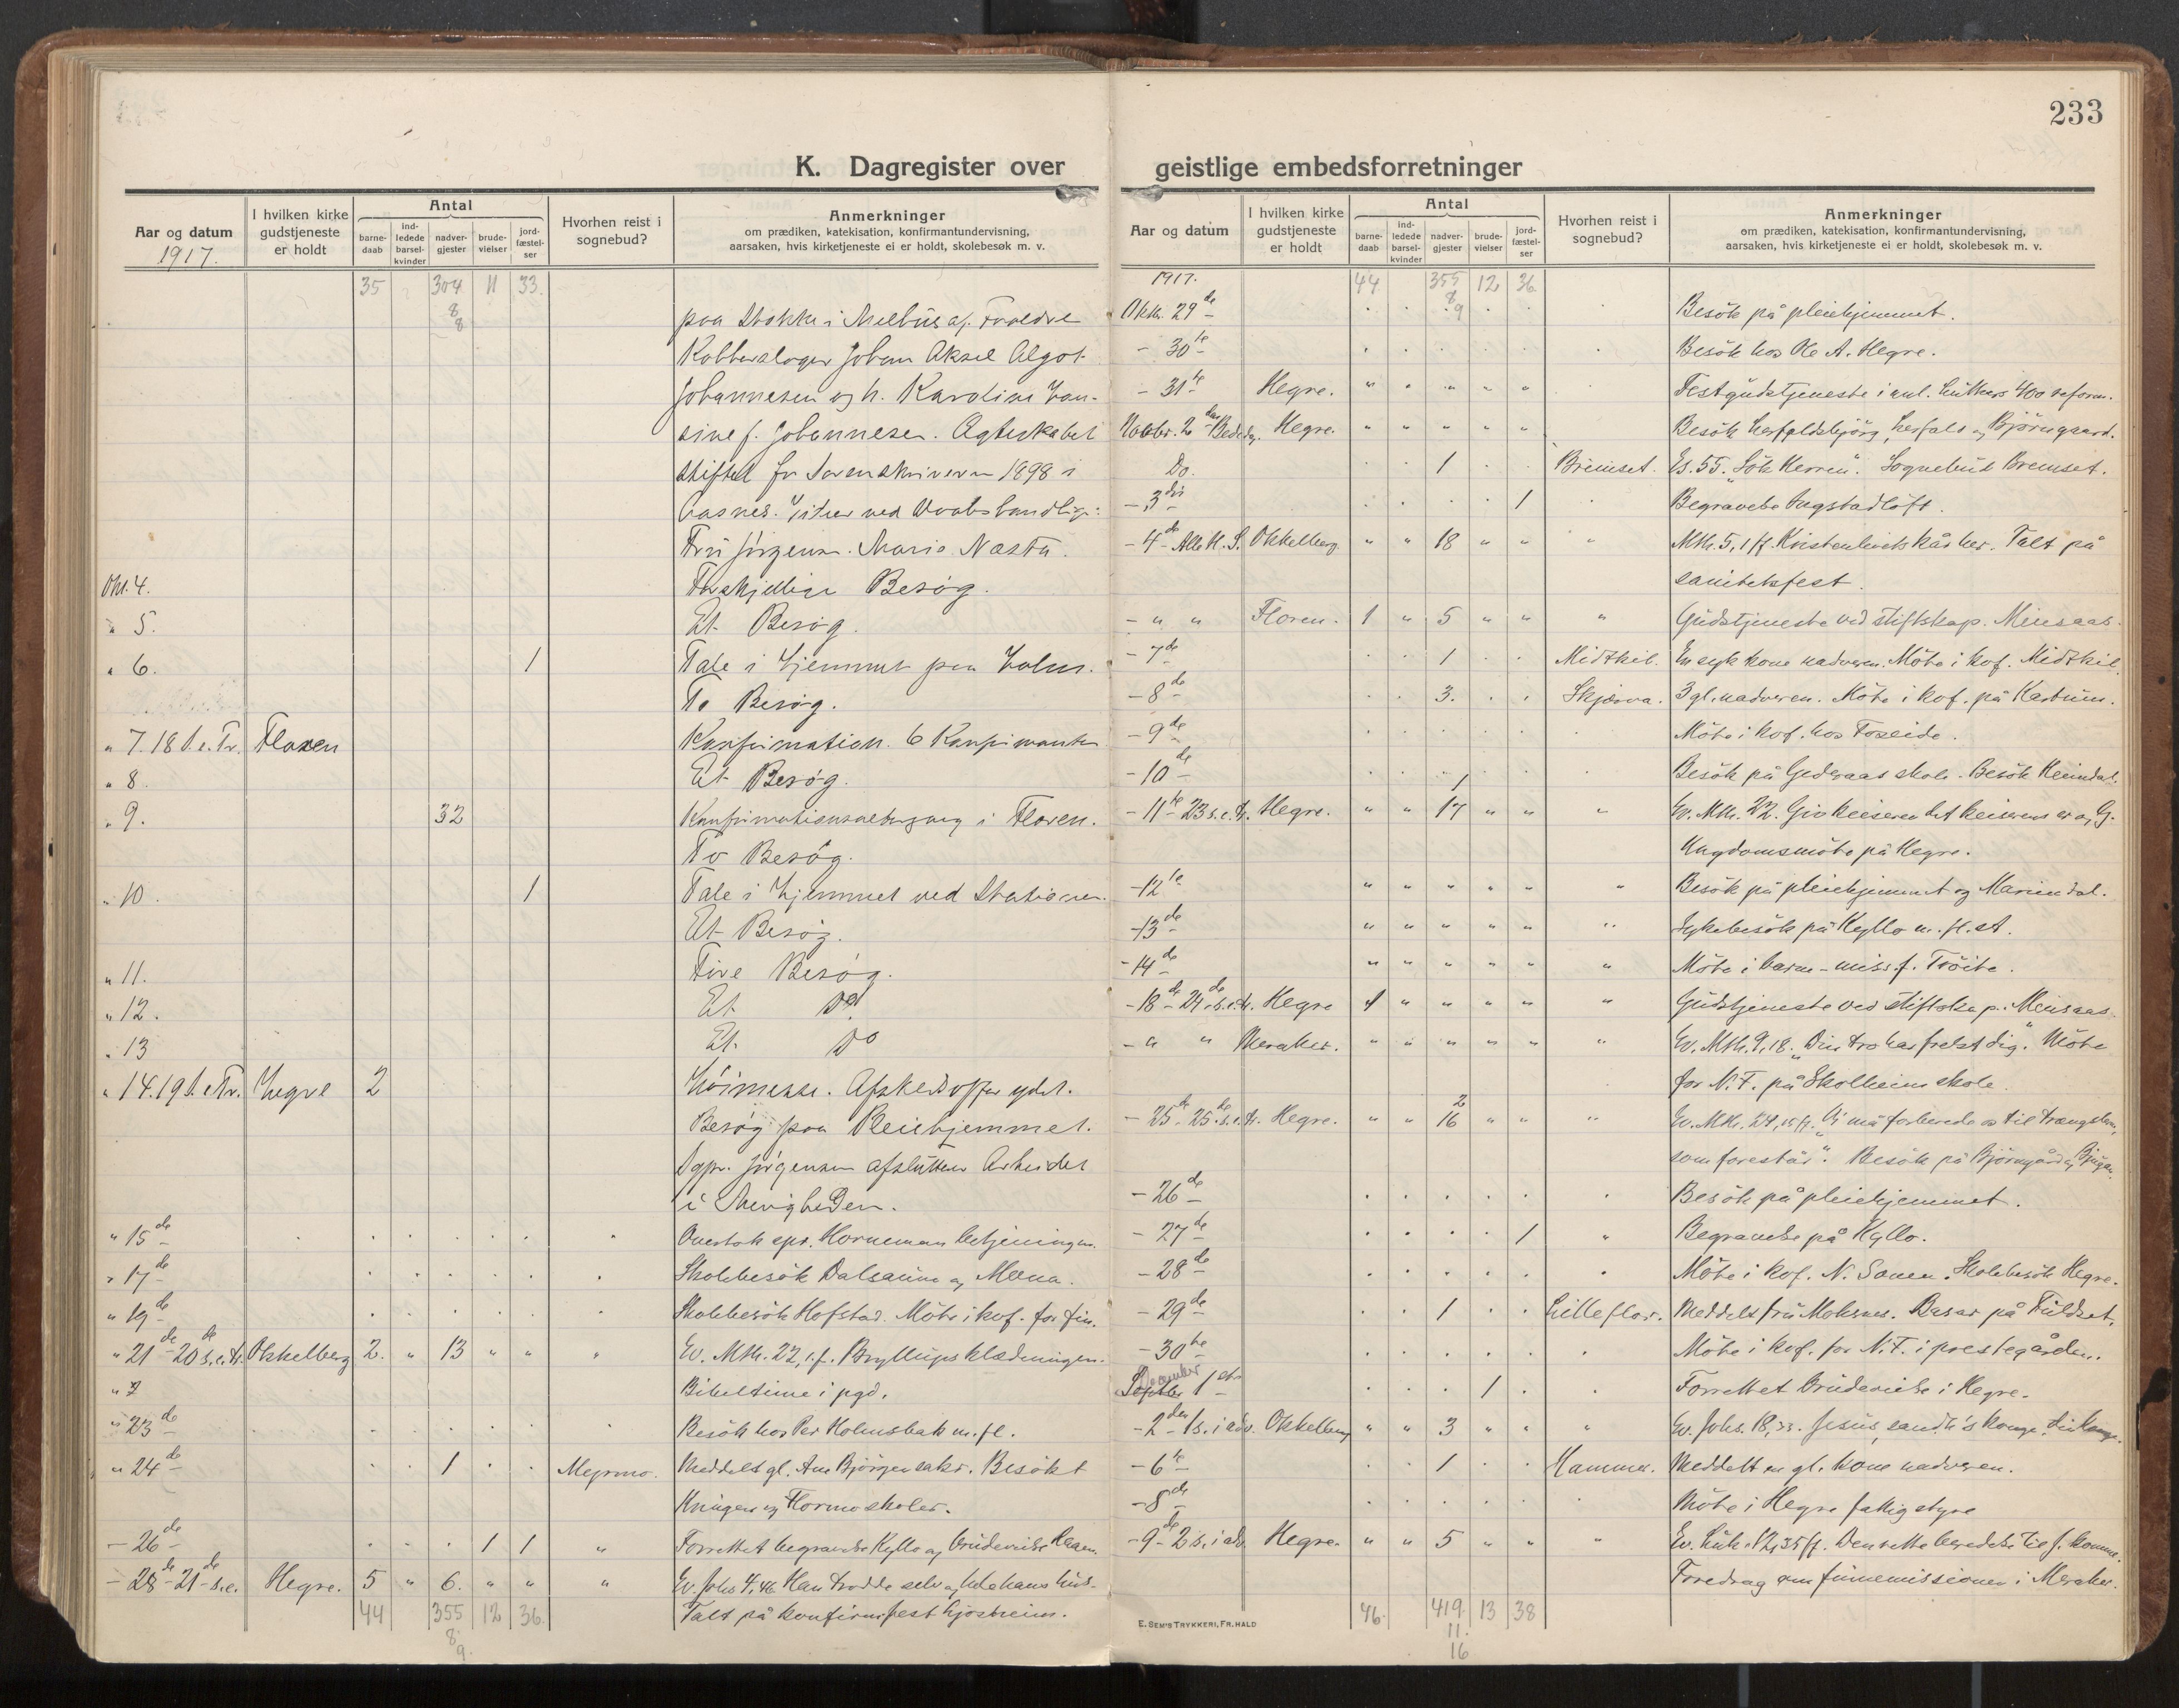 233
K. Dagregister over
Aar og datum 1917.
I hvilken kirke gudstjeneste er holdt
Antal
barne-daab
ind-ledede barsel-kvinder
nadver-gjester
brude-vielser
jord-fæstel-ser
Hvorhen reist i sognebud?
Anmerkninger
om prædiken, katekisation, konfirmantundervisning,
aarsaken, hvis kirketjeneste ei er holdt, skolebesøk m. v.
35 304 11 33.
8
8
paa Stokke i Melhus af. Forældre
Kobberslager Johan Aksel Algot
Johannesen og h. Karoline
f. Johannesen. Ægteskabet
stiftet for Sorenskriveren 1898 i
Fru Jörgensen. Marie Næsta.
Okt. 4. Forskjellige Besøg.
" 5. Et Besøg.
" 6. 1 Tale i Hjemmet paa
To Besøg.
" 7. 18 S. e. Tr. Floren Konfirmation. 6 Konfirmanter
" 8. Et Besøg.
" 9. 32 Konfirmationsaltergang i Floren.
To Besøg.
" 10. 1 Tale i Hjemmet ved Stationen.
Et Besøg.
" 11. Fire Besøg.
" 12. Et Do
" 13 Et Do
" 14. 19 S. e. Tr. Hegre 2 Höimesse. Afskedsoffer ydet.
Besøg paa Pleiehjemmet.
Sgpr. Jörgensen afslutter Arbeidet
i Menigheden.
" 15de Overtok spr. Horneman betjeningen.
" 17de Skolebesök Dalsaune og Meena.
" 19de Skolebesök Hofstad. Möte i kof. for fin.
" 21de 20de s. e. tr. Okkelberg 2. " 13 " " " Ev. Mth. 22, 1 f. Bryllupsklædningen.
" " Bibeltime i pgd.
" 23de Besök hos Per Holmsbak m. fl.
" 24de 1 Mejermo. Meddelt gl. Besökt
og Flormo skoler.
- 26de 1 1 " Forrettet begravelse Kyllo og brudevielse
- 28de 21de s. e. Hegre. 5 " 6. " " " Ev. Johs 4, 46 Han trodde selv og hele hans hus.
44 355 12 36. Talt på konfirm.fest
8
9.
geistlige embedsforretninger
Aar og datum
I hvilken kirke gudstjeneste er holdt
Antal
barne-daab
ind-ledede barsel-kvinder
nadver-gjester
brude-vielser
jord-fæstel-ser
Hvorhen reist i sognebud?
Anmerkninger
om prædiken, katekisation, konfirmantundervisning,
aarsaken, hvis kirketjeneste ei er holdt, skolebesøk m. v.
1917. 44 355 12 36
8
Oktb. 29de 9 Besök på pleiehjemmet.
- 30te Besök hos Ole A. Hegre.
- 31te Hegre. " " " " " Festgudstjeneste i anl. Luthers 400 reform.
Novbr. 2den Bededag. Hegre. " " " " " Besök og Björngaard.
Do. 1 Bremset. Es. 55. "Sök Herren". Sognebud Bremset.
- 3die 1 Begravelse Ingstadlöft.
- 4de Alle H. S. Okkelberg " " 18 " " " Mth. 5, 1 ff. kår her. Talt på
sanitetsfest.
- " " Floren. 1 " 5 " " " Gudstjeneste ved stiftskap. Meisaas.
- 7de 1 Midtkil. En syk kone nadveren. Möte i kof. Midtkil
- 8de 3. Skjerva. 3 gl. nadveren. Möte i kof. på
- 9de Möte i kof. hos Foseide.
- 10de 1 Besök på Gederaas skole. Besök
- 11te 23 s. e. tr. Hegre. " " 17 " " " Ev. Mth. 22. Giv keiseren det keiserens er og G.
Ungdomsmöte på Hegre.
- 12te " " " " " " Besök på pleiehjemmet og Mariendal.
- 13de " " " " " " Sykebesök på Kyllo m. fl. st.
- 14de " " " " " " Möte i barne-miss.f. Tröite.
- 18de 24de s. e. tr. Hegre 1 " " " " " Gudstjeneste ved stiftskap. Meisaas.
- " " Meraker. " " " " " " Ev. Mth. 9, 18. "Din tro har frelst dig." Möte
for N. F. på Skolheim skole.
2
- 25de 25de s. e. tr. Hegre. " " 16 " " " Ev. Mth. 24, 15 ff. "Vi må forberede os til trængslerne,
som forestår". Besök på Björngård og
- 26de Besök på pleiehjemmet.
- 27de 1 " Begravelse på Kyllo.
- 28de Möte i kof. N. Skolebesök Hegre.
- 29de 1 Lilleflor. Meddelt fru Moksnes. Basar på Fuldset.
- 30te Möte i kof. for N. F. i prestegården.
Septbr December 1ste 1 Forrettet brudevielse i Hegre.
- 2den 1 s. i adv. Okkelberg " " 3 " " " Ev. Johs. 18, 33. Jesus, sandh's konge, din konge.
- 6te 1 Hammer. Meddelt en gl. kone nadveren.
- 8de Möte i Hegre fattigstyre
- 9de 2 s. i adv. Hegre " " 5 " " " Ev. Luk. 12, 35 ff. Den rette beredelse til J. komme.
Foredrag om finnemissionen i Meraker.
46. 419. 13 38
11.
16
E. SEM'S TRYKKERI, FR.HALD